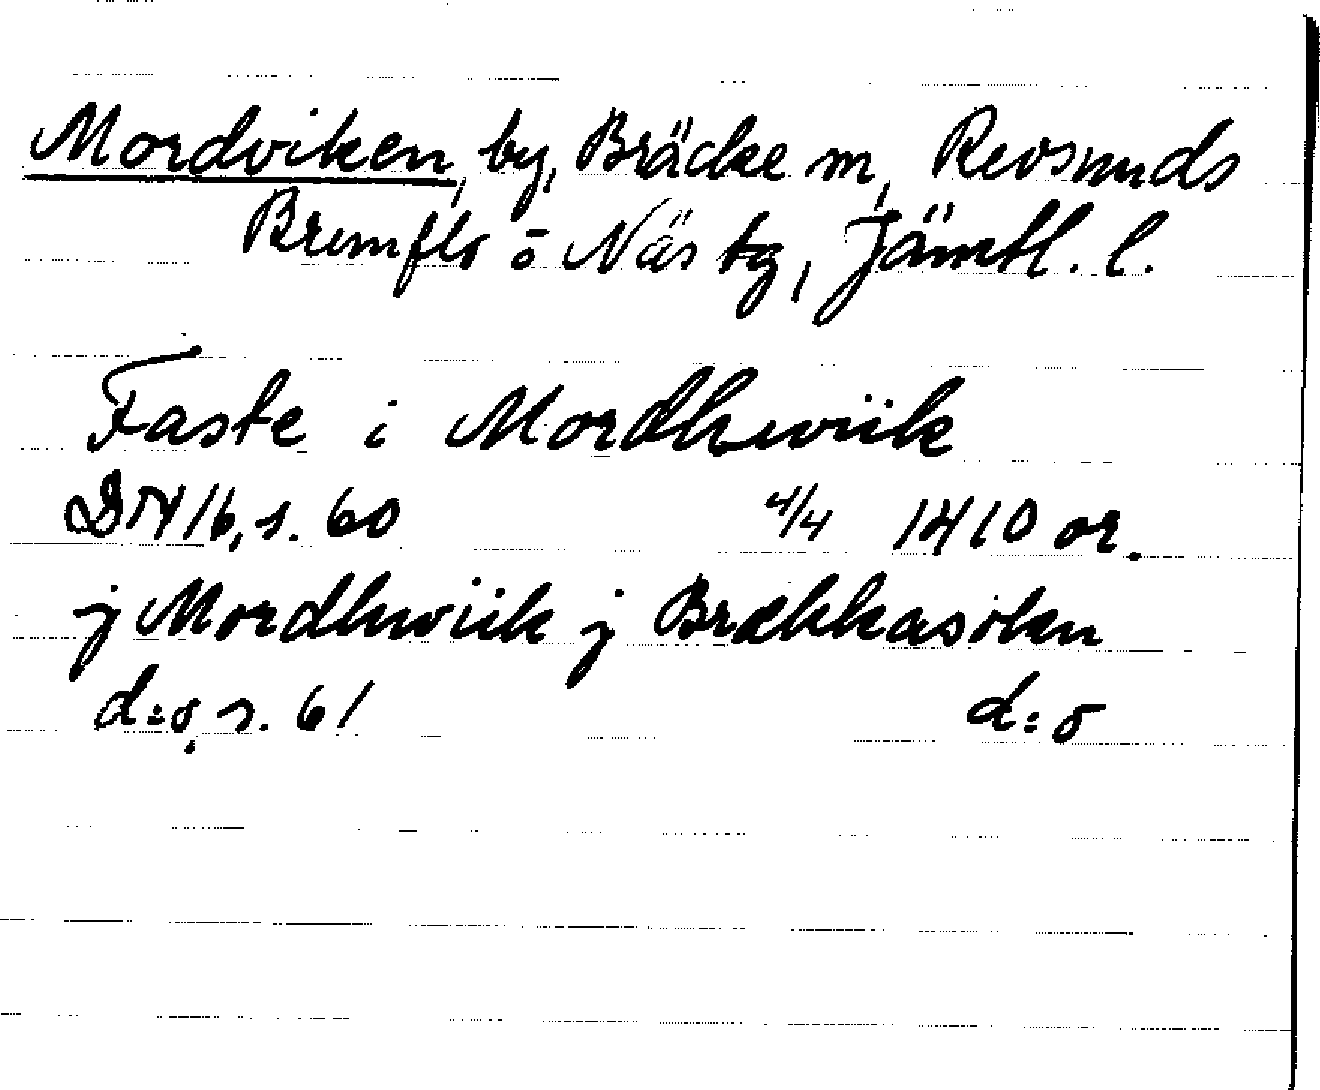 Mordviken, by, Bräcke sn, Revsunds
Brunflo o Näs tg, Jämtl. l.
Faste i Mordhewiik
DN 16, s. 60 4/4 1410 or.
j Mordhwiik j Brækkasokn
d:o, s. 61 d:o